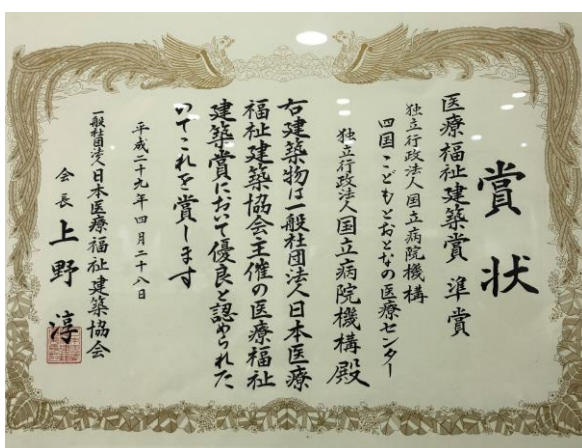 賞状
医療福祉建築賞 準賞
独立行政法人国立病院機構
四国こどもとおとなの医療センター
独立行政法人国立病院機構殿
右建築物は一般社団法人日本医療
福祉建築協会主催の医療福祉
建築賞において優良と認められた
いてこれを賞します
平成二十九年四月二十八日
一般社団法人日本医療福祉建築協会
会長 上野 淳